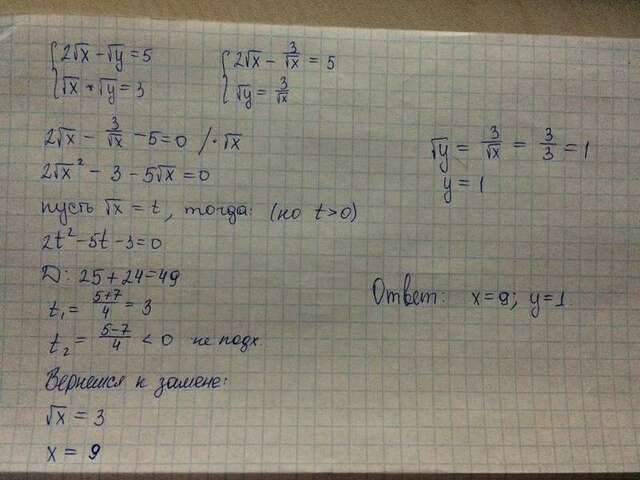 { 2√x - √y = 5
{ √x * √y = 3
{ 2√x - 3/√x = 5
{ √y = 3/√x
2√x - 3/√x - 5 = 0 / · √x
2√x² - 3 - 5√x = 0
пусть √x = t, тогда: (но t > 0)
2t² - 5t - 3 = 0
D: 25 + 24 = 49
t₁ = (5+7)/4 = 3
t₂ = (5-7)/4 < 0 не подх.
Вернемся к замене:
√x = 3
x = 9
√y = 3/√x = 3/3 = 1
y = 1
Ответ: x = 9; y = 1